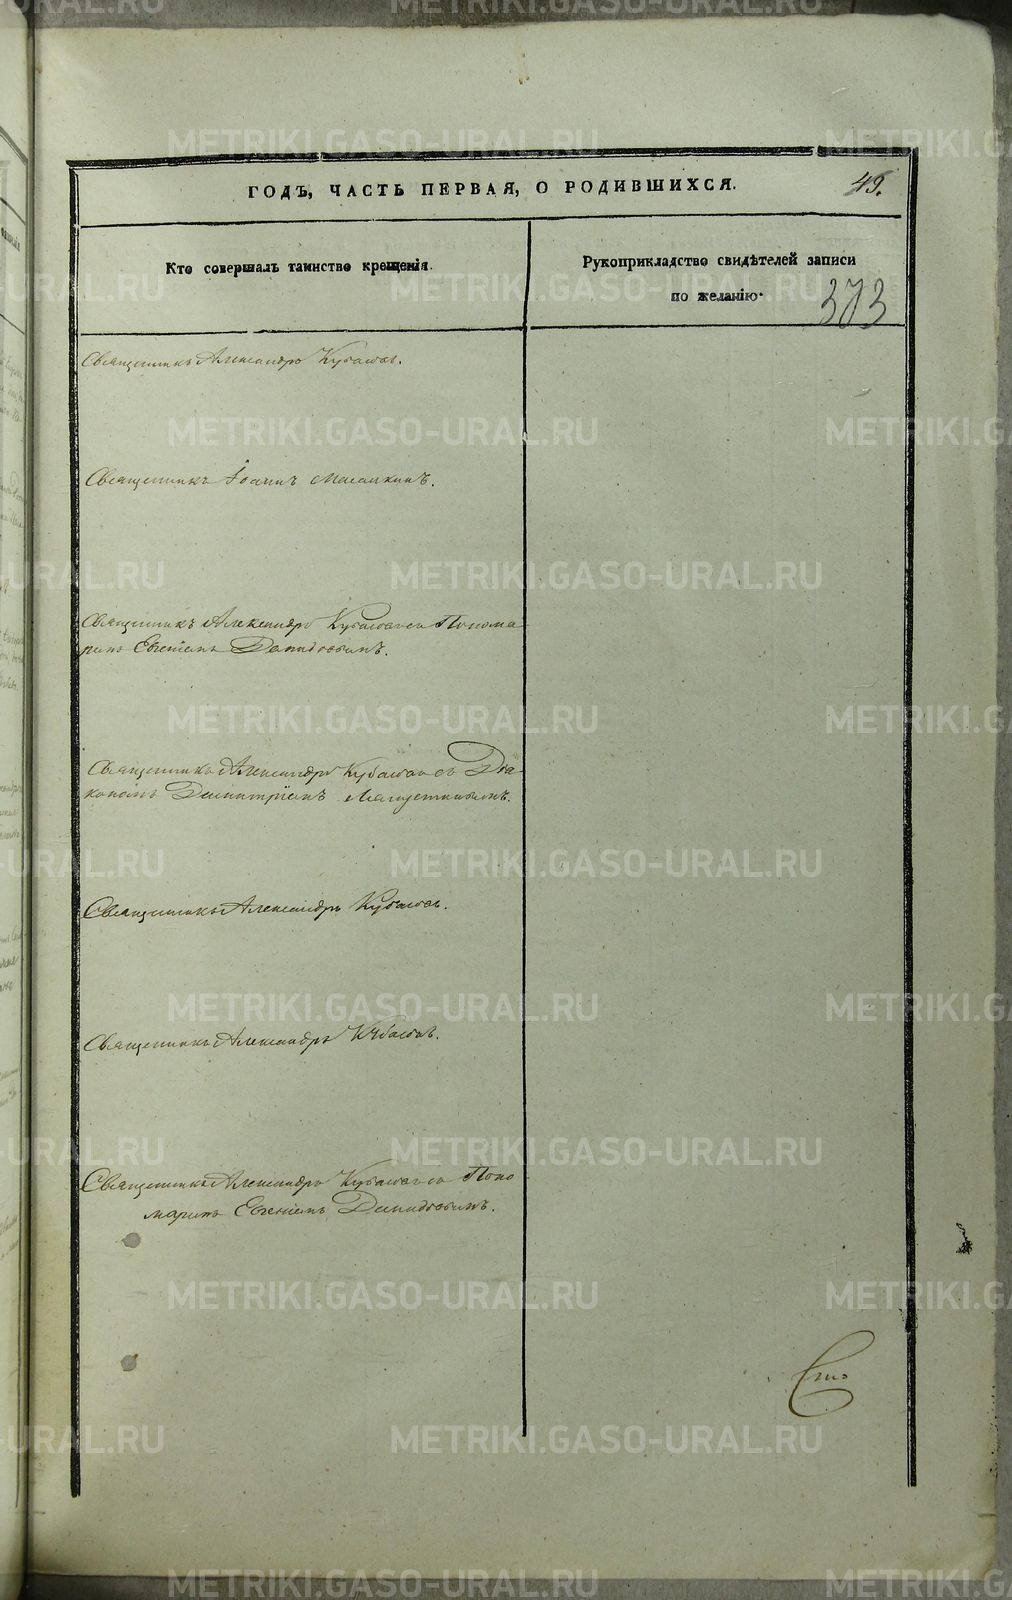 ГОДЪ, ЧАСТЬ ПЕРВАЯ, О РОДИВШИХСЯ.
49.
Кто совершалъ таинство крещенія.
Рукоприкладство свидѣтелей записи
по желанію.
373
Священникъ Александръ Кубасовъ.
Священникъ Іоаннъ
Священникъ Александръ Кубасовъ со Понома
ремъ Евгеніемъ Давидовымъ.
Священникъ Александръ Кубасовъ съ Діа
кономъ Димитріемъ
Священникъ Александръ Кубасовъ.
Священникъ Александръ Кубасовъ.
Священникъ Александръ Кубасовъ со Поно
маремъ Евгеніемъ Давидовымъ.
METRIKI.GASO-URAL.RU